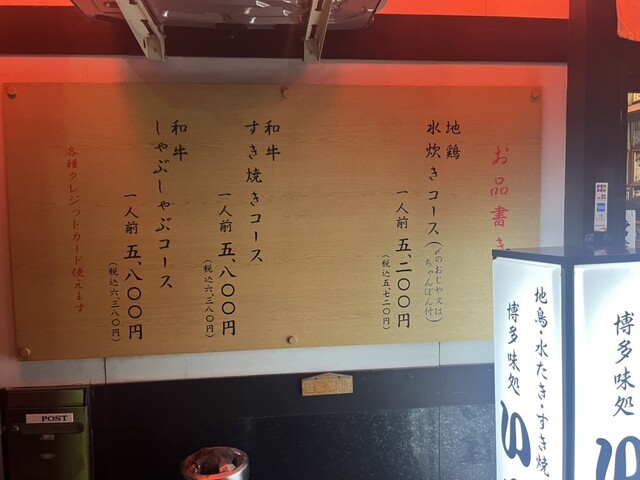 お品書き
地鶏
水炊きコース(〆のおじや又は
ちゃんぽん付)
一人前 五、二〇〇円
(税込五、七二〇円)
和牛
すき焼きコース
一人前 五、八〇〇円
(税込六、三八〇円)
和牛
しゃぶしゃぶコース
一人前 五、八〇〇円
(税込六、三八〇円)
各種クレジットカード使えます
POST
地鳥・水たき・すき焼
博多味処
博多味処